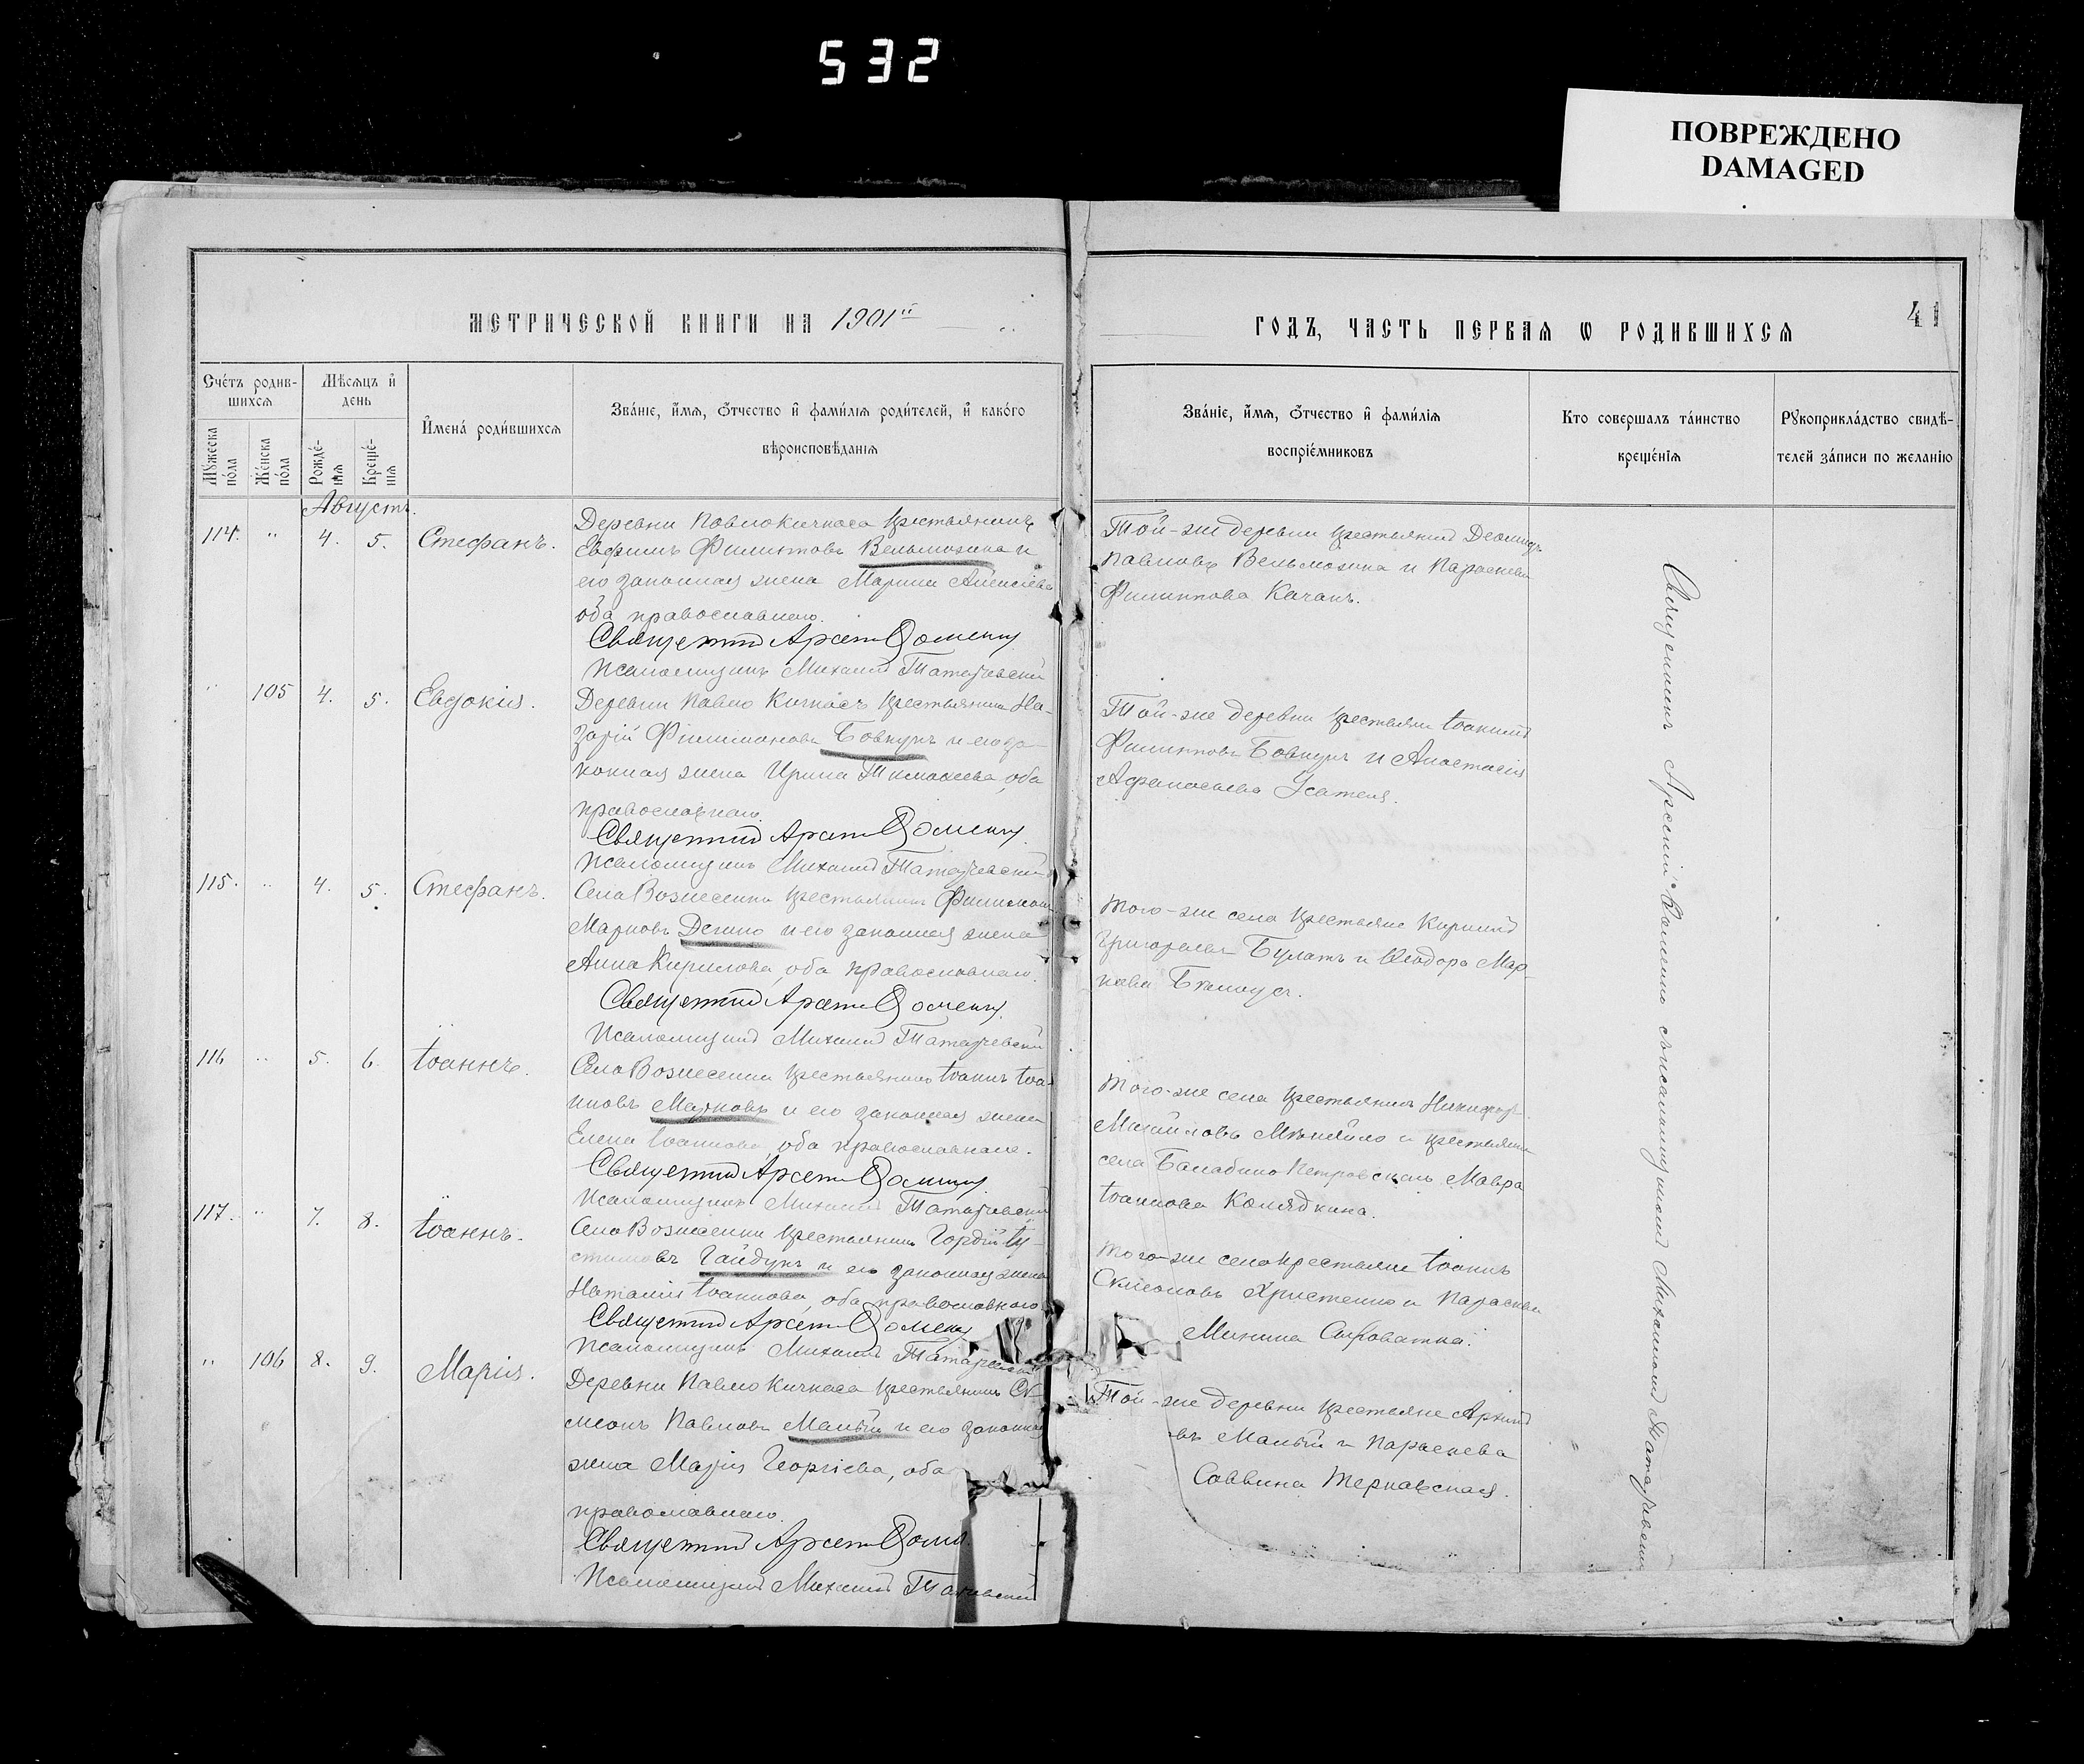 532
ПОВРЕЖДЕНО
DAMAGED
МЕТРИЧЕСКОЙ КНИГИ НА 1901й
ГОДЪ, ЧАСТЬ ПЕРВАЯ Ѡ РОДИВШИХСЯ
41
Счетъ родив-
шихся
Мѣсяцъ и
день
Имена родившихся
Званіе, имя, отчество и фамилія родителей, и какого
вѣроисповѣданія
Мужеска пола
Женска пола
Рожде-
нія
Креще-
нія
Званіе, имя, отчество и фамилія
воспріемниковъ
Кто совершалъ таинство
крещенія
Рукоприкладство свидѣ-
телей записи по желанію
Августъ.
114. " 4. 5. Стефанъ.
Деревни Павлокичкаса крестьянинъ
Евфимъ Филипповъ Вельможина и
его законная жена Марина Алексіева
оба православнаго.
Священникъ Арсеній Доменко
Псаломщикъ Михаилъ Татаревскій
Той-же деревни крестьянинъ
Павловъ Вельможина и Параскева
Филиппова Качанъ.
" 105 4. 5. Евдокія.
Деревни Павло Кичкасъ крестьянинъ На-
зарій Филимоновъ Бовкунъ и его за-
конная жена Ирина Тимофеева, оба
православнаго.
Священникъ Арсеній Доменко
Псаломщикъ Михаилъ Татаревскій
Той-же деревни крестьяне Іоакимъ
Филипповъ Бовкунъ и Анастасія
Афанасьева
115. " 4. 5. Стефанъ.
Села Вознесенки крестьянинъ Филимонъ
Марковъ и его законная жена
Анна Кирилова, оба православнаго.
Священникъ Арсеній Доменко
Псаломщикъ Михаилъ Татаревскій
Того-же села крестьяне Кириллъ
Григорьевъ Булатъ и Ѳеодора Мар-
кова
116 " 5. 6. Іоаннъ.
Села Вознесенки крестьянинъ Іоаннъ Іоан-
новъ Марковъ и его законная жена
Елена Іоаннова, оба православнаго.
Священникъ Арсеній Доменко
Псаломщикъ Михаилъ Татаревскій
Того-же села крестьянинъ Никифоръ
и крестьянка
села Балабино Петровскаго Мавра
Іоаннова Колядкина.
117. " 7. 8. Іоаннъ.
Села Вознесенки крестьянинъ Гордій Іу-
стиновъ Гайдукъ и его законная жена
Наталія Іоаннова, оба православнаго.
Священникъ Арсеній Доменко
Псаломщикъ Михаилъ Татаревскій
Того-же села крестьяне Іоаннъ
Симеоновъ Христенко и Параскева
Минина Сыроватка.
" 106 8. 9. Марія.
Деревни Павлокичкаса крестьянинъ Си-
меонъ Павловъ Малый и его законная
жена Марія Георгіева, оба
православнаго.
Священникъ Арсеній
Псаломщикъ Михаилъ
Той-же деревни крестьяне Архипъ
овъ Малый и Параскева
Саввина Терновская.
Священникъ Арсеній Доменко съ псаломщикомъ Михаиломъ Татаревскимъ